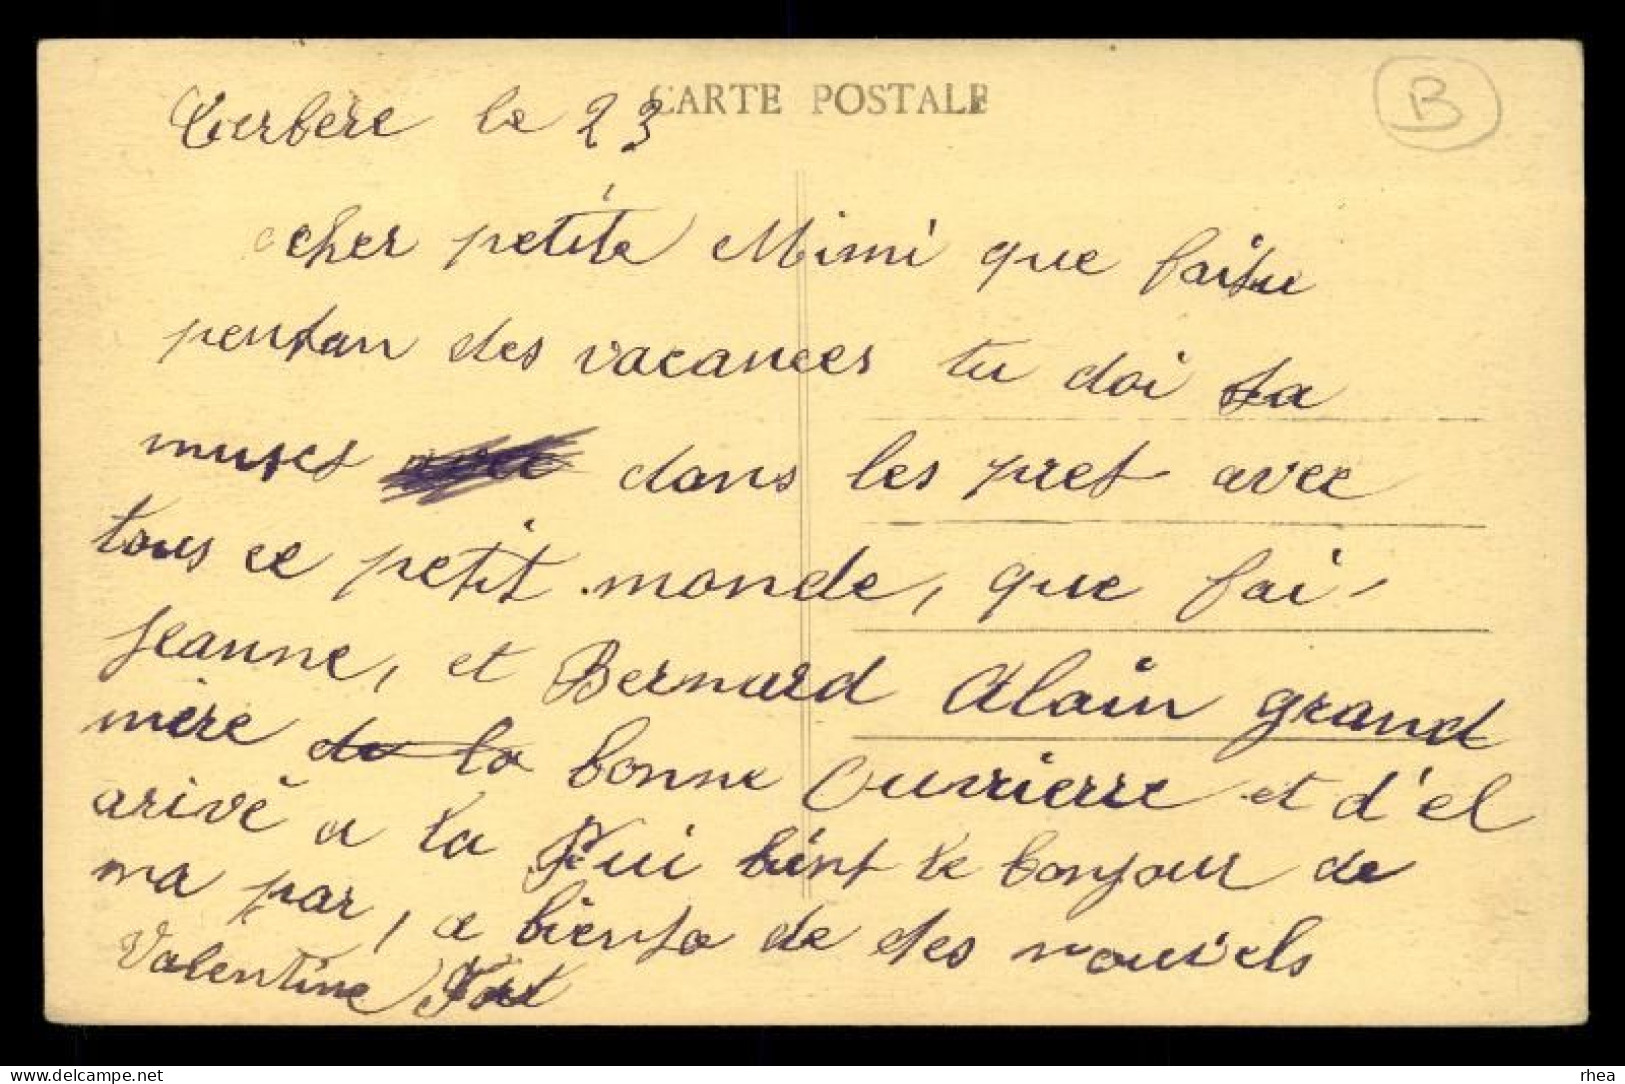 CARTE POSTALE
B
Cerbère le 23
cher petite Mimi que faitu
pentan des vacances tu doi ta
muset dans les pret avec
tous ce petit monde, que fai
Jeanne, et Bernard Alain grand
mère de la bonne Ouvrierre et d'el
arivé a la bint le bonjour de
ma par, a biento de des nouvels
Valentine
rhea